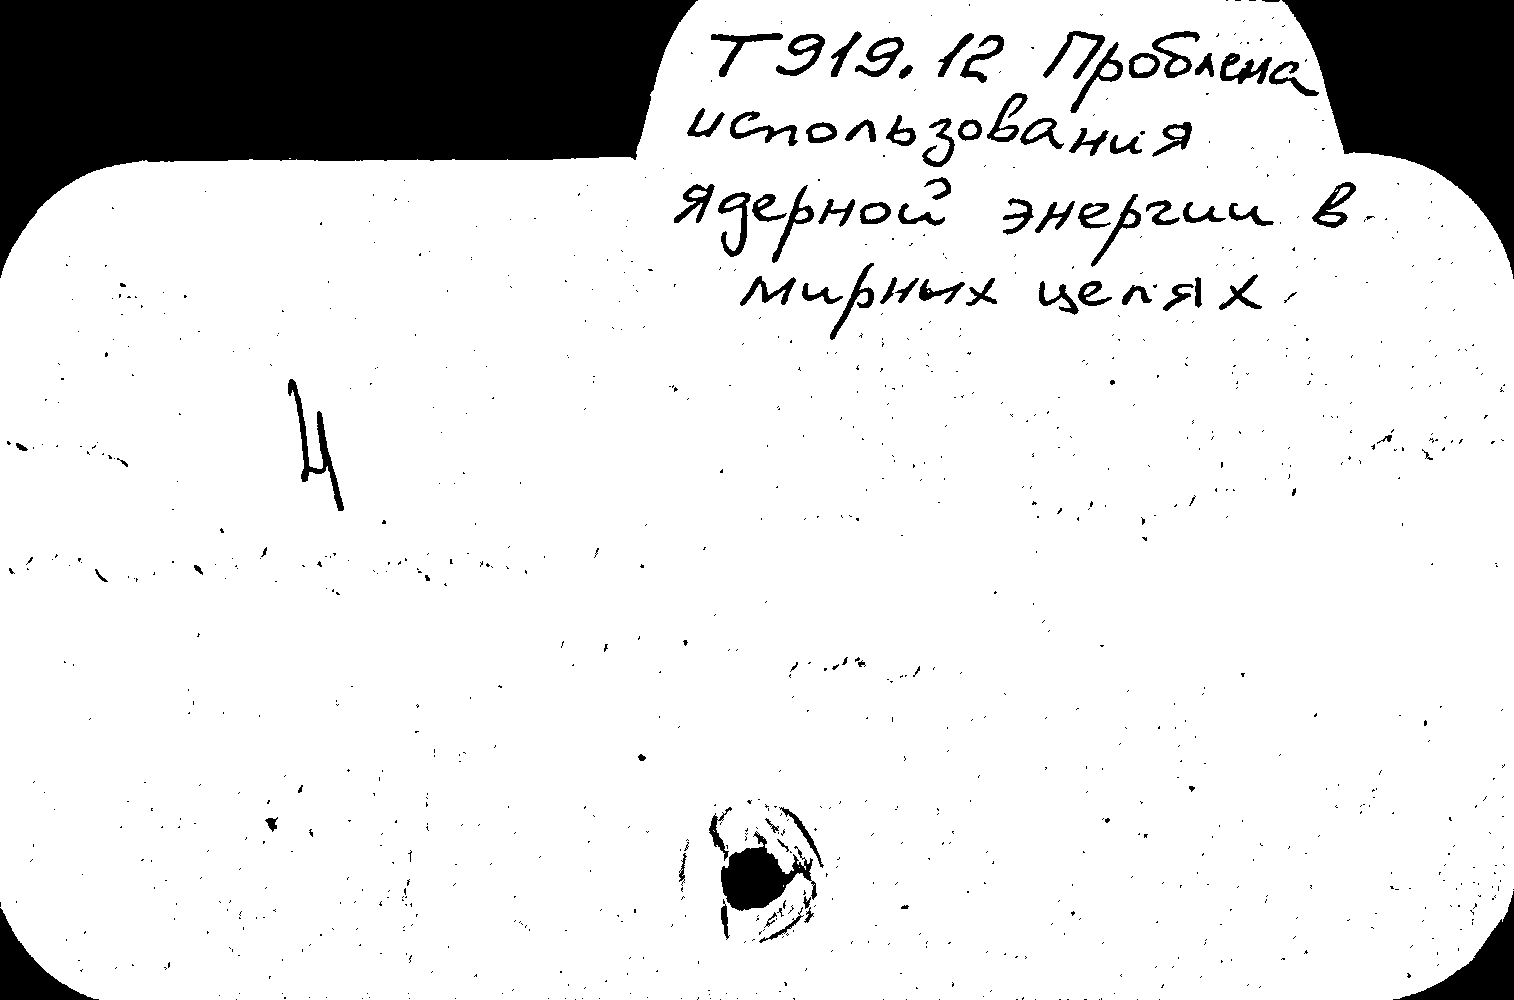 Т919.12 Проблема
использования
ядерной энергии в
мирных целях
4